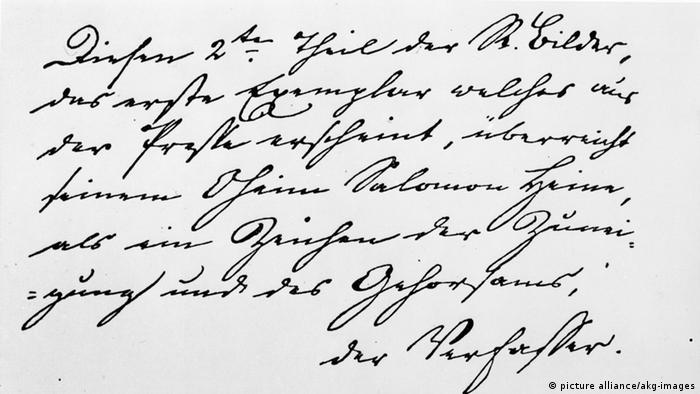 Diesen 2ten Theil der R. Bilder,
das erste Exemplar welches aus
der Presse erscheint, überreicht
seinem Oheim Salomon Heine,
als ein Zeichen der Zunei-
=gung und des Gehorsams,
der Verfasser.
picture alliance/akg-images